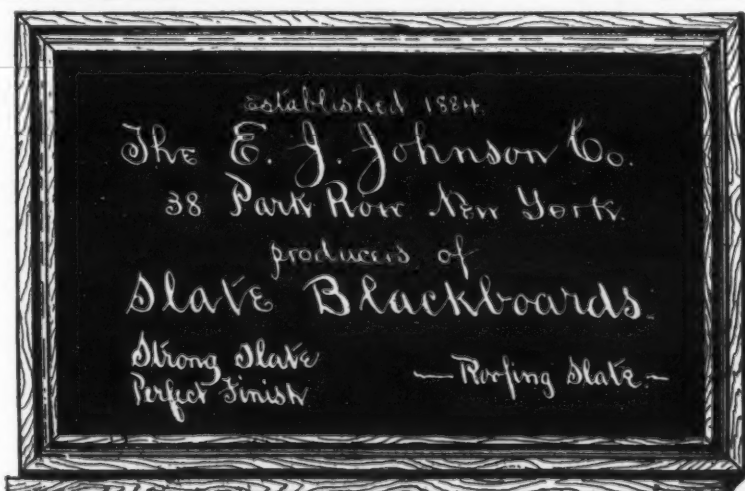 Established 1884.
The E. J. Johnson Co.
38 Park Row New York.
producers of
Slate Blackboards.
Strong Slate
Perfect Finish
— Roofing Slate. —